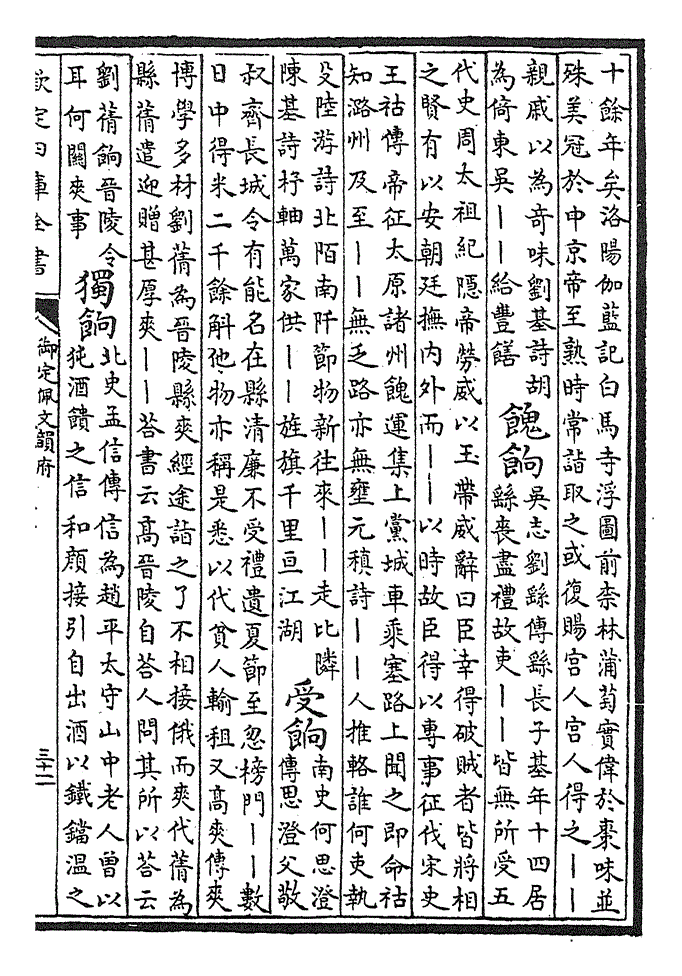 十餘年矣洛陽伽藍記白馬寺浮圖前柰林蒲萄實偉於棗味並
殊美冠於中京帝至熟時常詣取之或復賜宮人宮人得之丨丨
親戚以為竒味劉基詩胡
為倚東吳丨丨給豐饍
餽餉
吳志劉繇傳繇長子基年十四居
繇喪盡禮故吏丨丨皆無所受五
代史周太祖紀隠帝勞威以玉帶威辭曰臣幸得破賊者皆將相
之賢有以安朝廷撫内外而丨丨以時故臣得以專事征伐宋史
王祜傳帝征太原諸州餽運集上黨城車乘塞路上聞之即命祜
知潞州及至丨丨無乏路亦無壅元稹詩丨丨人推輅誰何吏執
殳陸游詩北陌南阡節物新往來丨丨走比隣
陳基詩杼軸萬家供丨丨旌旗千里亘江湖
受餉
南史何思澄
傳思澄父敬
叔齊長城令有能名在縣清廉不受禮遺夏節至忽榜門丨丨數
日中得米二千餘斛他物亦稱是悉以代貧人輸租又高爽傳爽
博學多材劉蒨為晉陵縣爽經途詣之了不相接俄而爽代蒨為
縣蒨遣迎贈甚厚爽丨丨荅書云髙晉陵自荅人問其所以荅云
劉蒨餉晉陵令
耳何關爽事
獨餉
北史孟信傳信為趙平太守山中老人曽以
㹠酒饋之信和顔接引自出酒以鐵鐺温之
欽定四庫全書
御定佩文韻府
三十二